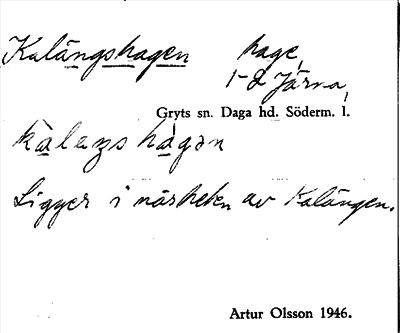 Kalängshagen hage,
1-2 Järna,
Gryts sn. Daga hd. Söderm. l.
Ligger i närheten av Kalängen.
Artur Olsson 1946.